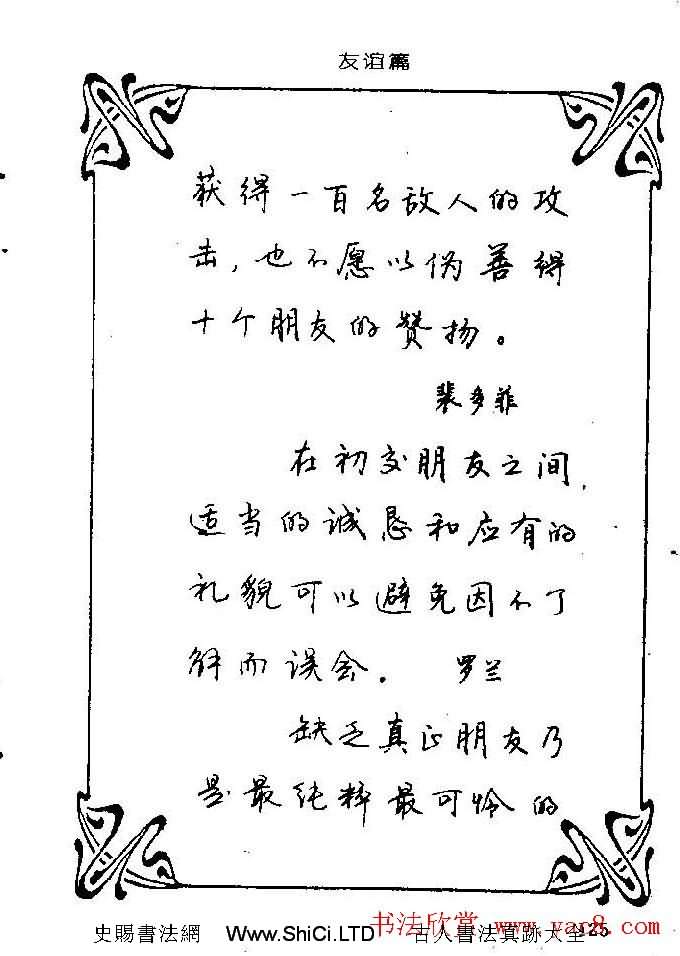 友谊篇
获得一百名敌人的攻
击，也不愿以伪善得
十个朋友的赞扬。
裴多菲
在初交朋友之间，
适当的诚恳和应有的
礼貌可以避免因不了
解而误会。 罗兰
缺乏真正朋友乃
是最纯粹最可怜的
书法欣赏 www.yac8.com
史賜書法網 Www.ShiCi.LTD 古人書法真跡大全
125